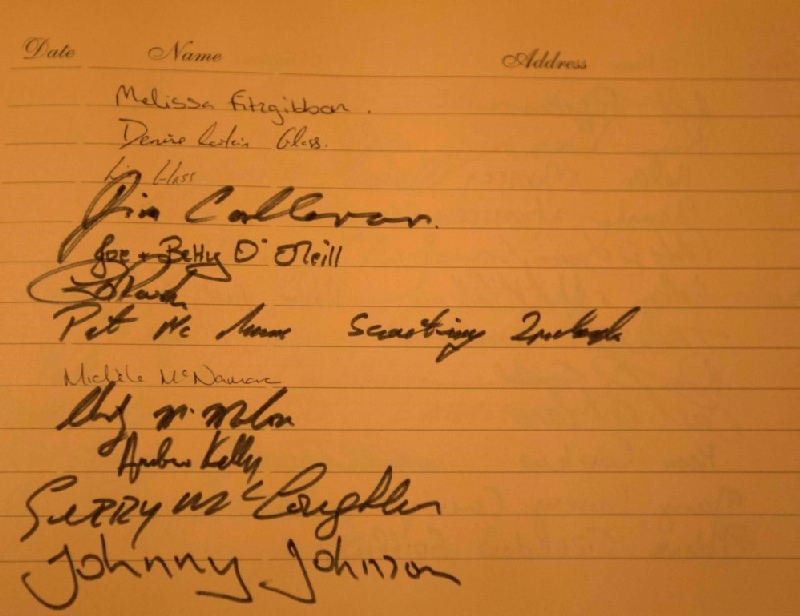 Date Name Address
Melissa Fitzgibbon.
Denise Glass.
Glass
Jim Callanan.
Joe + Betty O'Neill
Pat Mc Scouting Ireland
Michéle McNamara
Andrew Kelly
Gerry McLoughlin
Johnny Johnson